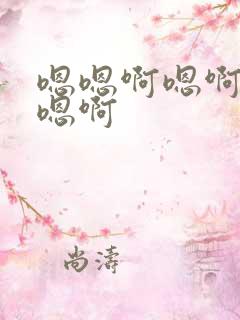 嗯嗯啊嗯啊
嗯啊
尚涛